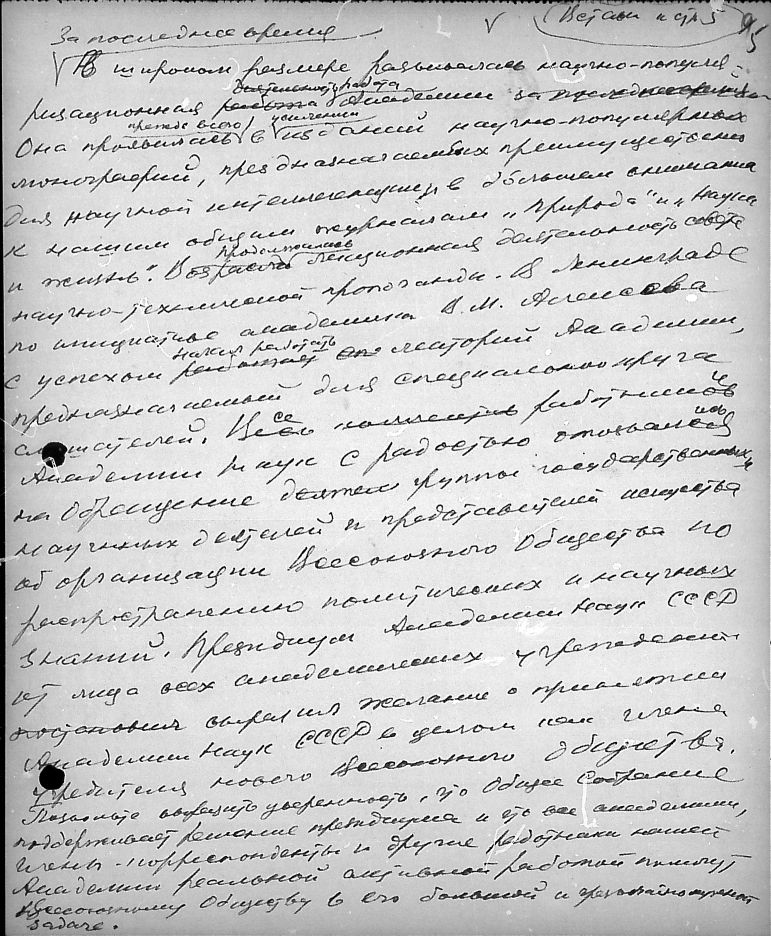 Вставка к стр 5
95
За последнее время
В широком размере развивалась научно-популя-
деятельность работа
ризационная работа Академии за последнее время
прежде всего усилении
Она проявилась в издании научно-популярных
монографий, предназначаемых преимущественно
для научной интеллигенции, в большем внимании
к нашим общим журналам „Природа" и „Наука
продолжалась
и жизнь". Возрасла лекционная деятельность совета
научно-технической пропаганды. В Ленинграде
по инициативе академика В. М. Алексеева
начал работать
с успехом работает лекторий Академии,
предназначаемый для специального круга
слушателей. Все коллектив работники
Академии Наук с радостью отозвались
на обращение деятел группы государственных,
научных деятелей и представителей искусства
об организации Всесоюзного Общества по
распространению политических и научных
знаний. Президиум Академии Наук СССР
от лица всех академических учреждений
постановил выразил желание о принятии
Академии Наук СССР в целом как члена
учредителя нового Всесоюзного общества.
Позвольте выразить уверенность, что Общее Собрание
поддерживает решение президиума и что все академики,
члены-корреспонденты и другие работники нашей
Академии реальной активной работой помогут
Всесоюзному Обществу в его большой и чрезвычайно нужной
задаче.